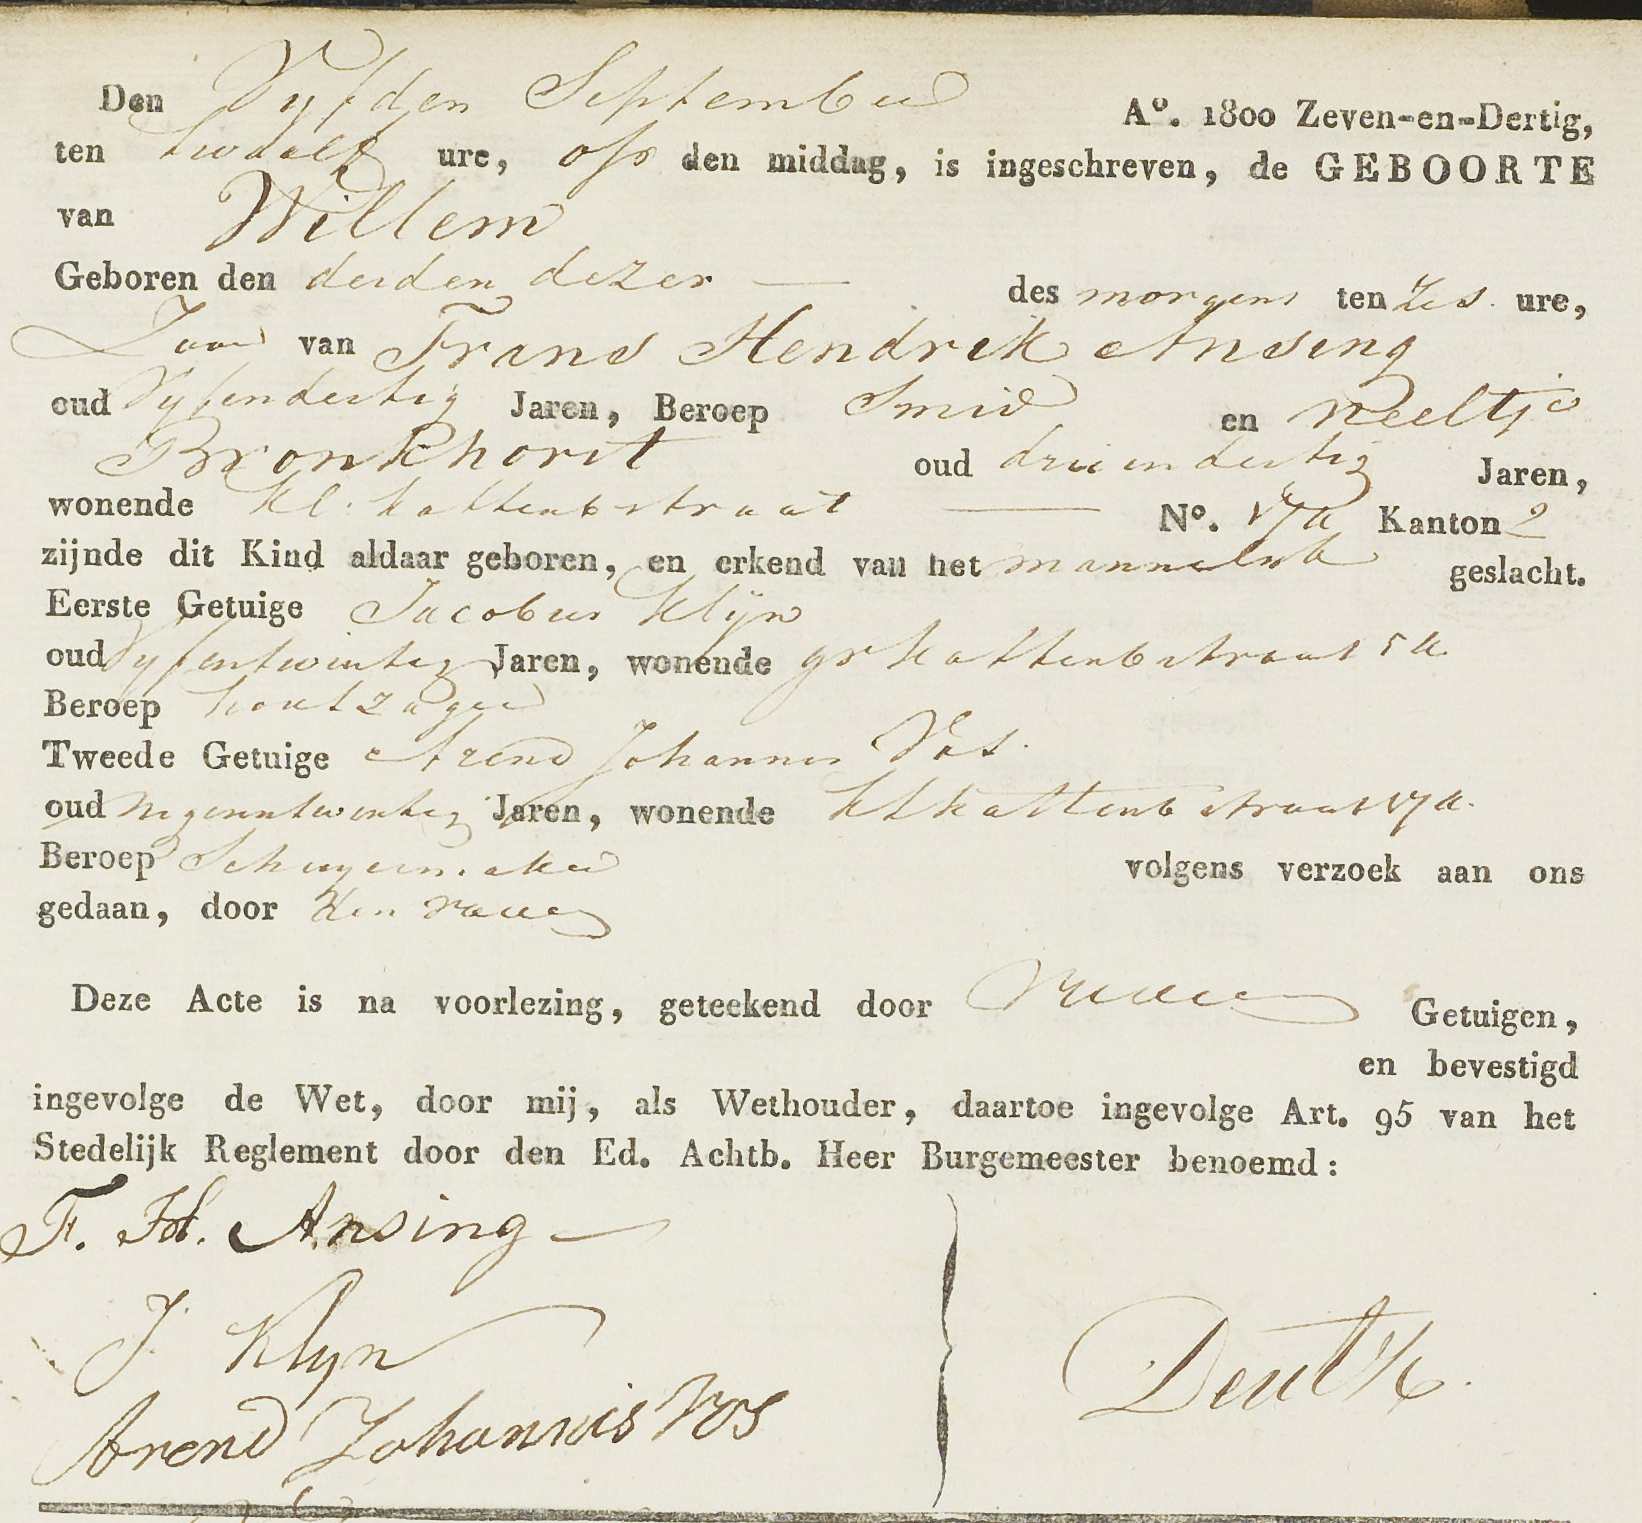 Den Vyfden September A°. 1800 Zeven-en-Dertig,
ten twaalf ure, op den middag, is ingeschreven, de GEBOORTE
van Willem
Geboren den derden dezer — des morgens ten zes ure,
Zoon van Frans Hendrik Ansing
oud Vyfendertig Jaren, Beroep Smid en Neeltje
Bronkhorst oud drieendertig Jaren,
wonende Kl. Kattenb straat — N°. 17a Kanton 2
zijnde dit Kind aldaar geboren, en erkend van het mannelyk geslacht.
Eerste Getuige Jacobus Klÿn
oud Vyfentwintig Jaren, wonende gr Kattenb straat 5a.
Beroep houtzager
Tweede Getuige Arend Johannes Vos.
oud Negenentwintig Jaren, wonende Kl Kattenb straat 17a.
Beroep Schuyermaker volgens verzoek aan ons
gedaan, door den vader
Deze Acte is na voorlezing, geteekend door Vader Getuigen,
en bevestigd
ingevolge de Wet, door mij, als Wethouder, daartoe ingevolge Art. 95 van het
Stedelijk Reglement door den Ed. Achtb. Heer Burgemeester benoemd:
F. H. Ansing
J. Klyn
Arend Johannis Vos